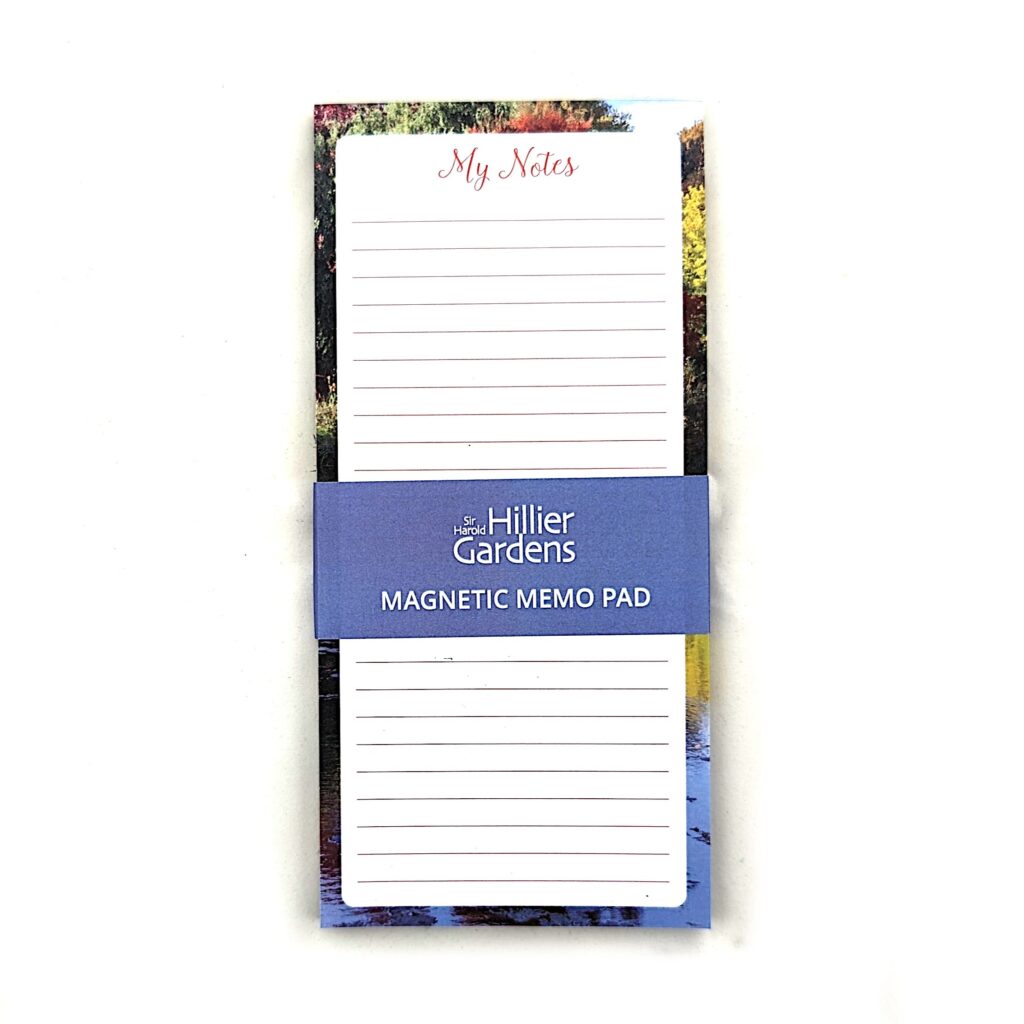 My Notes
Sir
Harold Hillier
Gardens
MAGNETIC MEMO PAD